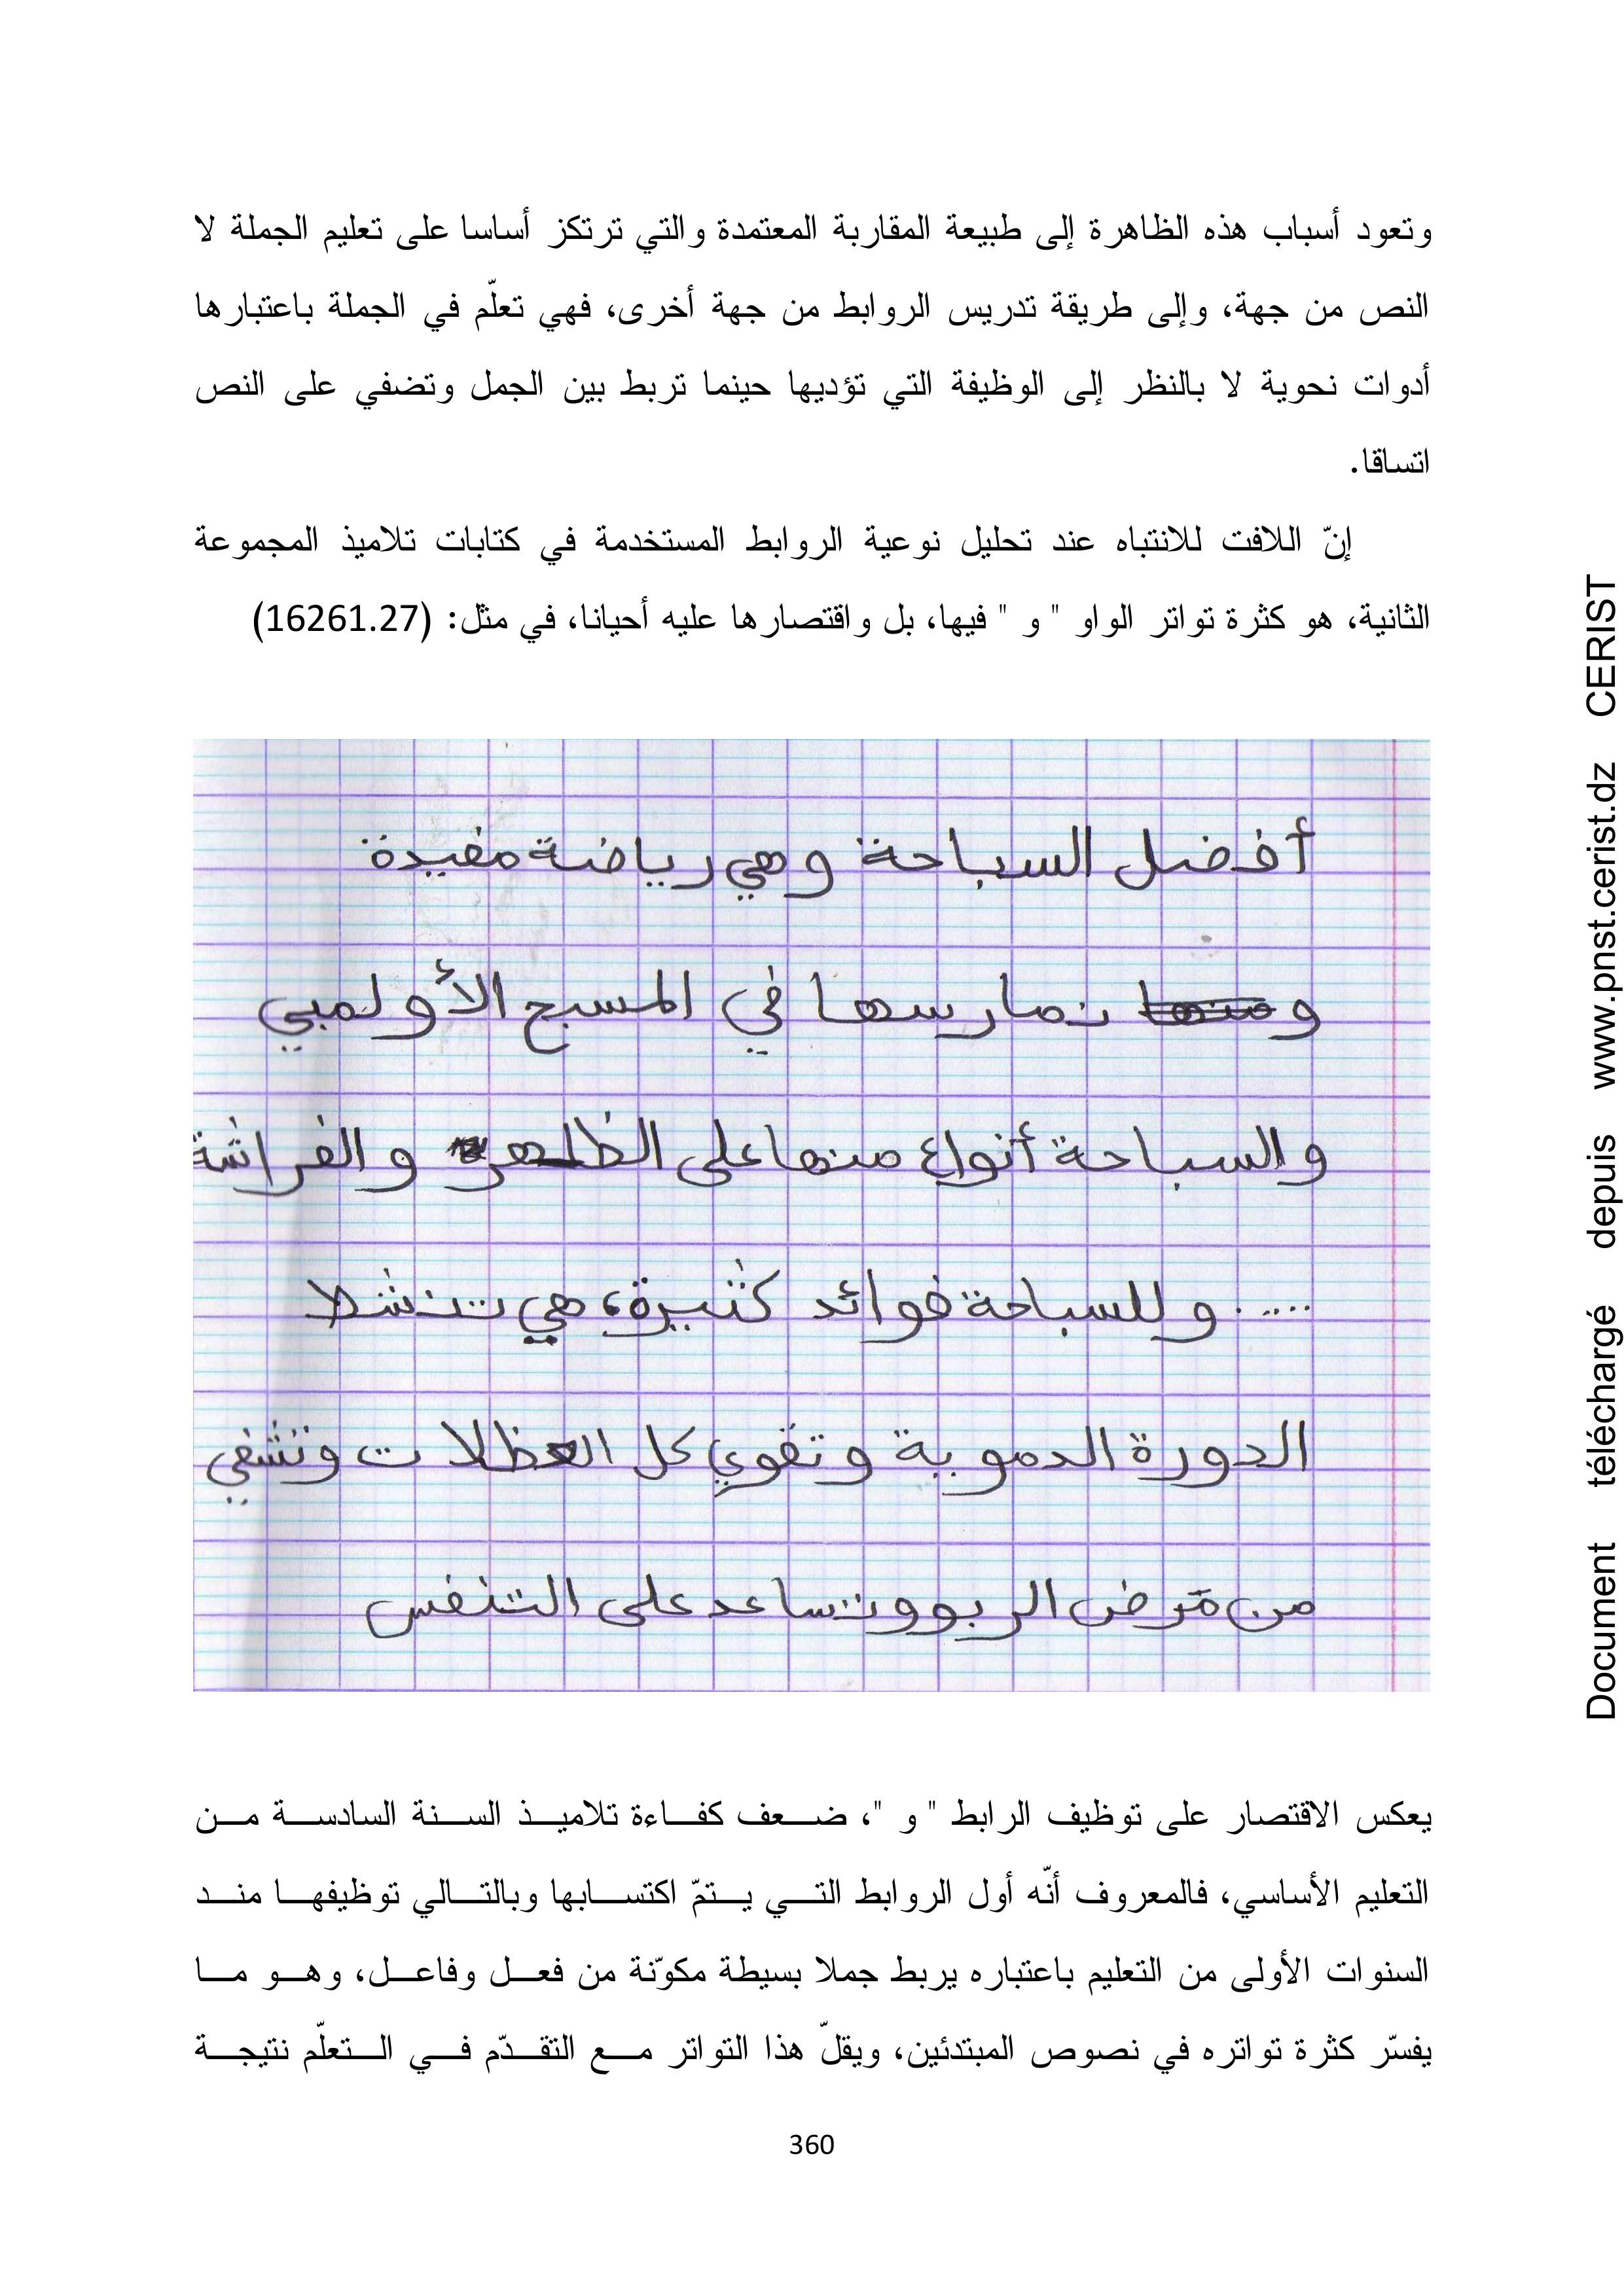 وتعود أسباب هذه الظاهرة إلى طبيعة المقاربة المعتمدة والتي ترتكز أساسا على تعليم الجملة لا
النص من جهة، وإلى طريقة تدريس الروابط من جهة أخرى، فهي تعلّم في الجملة باعتبارها
أدوات نحوية لا بالنظر إلى الوظيفة التي تؤديها حينما تربط بين الجمل وتضفي على النص
اتساقا.
إنّ اللافت للانتباه عند تحليل نوعية الروابط المستخدمة في كتابات تلاميذ المجموعة
الثانية، هو كثرة تواتر الواو " و " فيها، بل واقتصارها عليه أحيانا، في مثل: (16261.27)
أفضل السباحة وهي رياضة مفيدة
و منها نمارسها في المسبح الأولمبي
والسباحة أنواع منها على الظهر والفراشة
..... وللسباحة فوائد كثيرة، هي تنشط
الدورة الدموية وتقوي كل العظلات وتشفي
من مرض الربو وتساعد على التنفس
يعكس الاقتصار على توظيف الرابط " و "، ضعف كفاءة تلاميذ السنة السادسة من
التعليم الأساسي، فالمعروف أنّه أول الروابط التي يتمّ اكتسابها وبالتالي توظيفها مند
السنوات الأولى من التعليم باعتباره يربط جملا بسيطة مكوّنة من فعل وفاعل، وهو ما
يفسّر كثرة تواتره في نصوص المبتدئين، ويقلّ هذا التواتر مع التقدّم في التعلّم نتيجة
360
Document téléchargé depuis www.pnst.cerist.dz CERIST